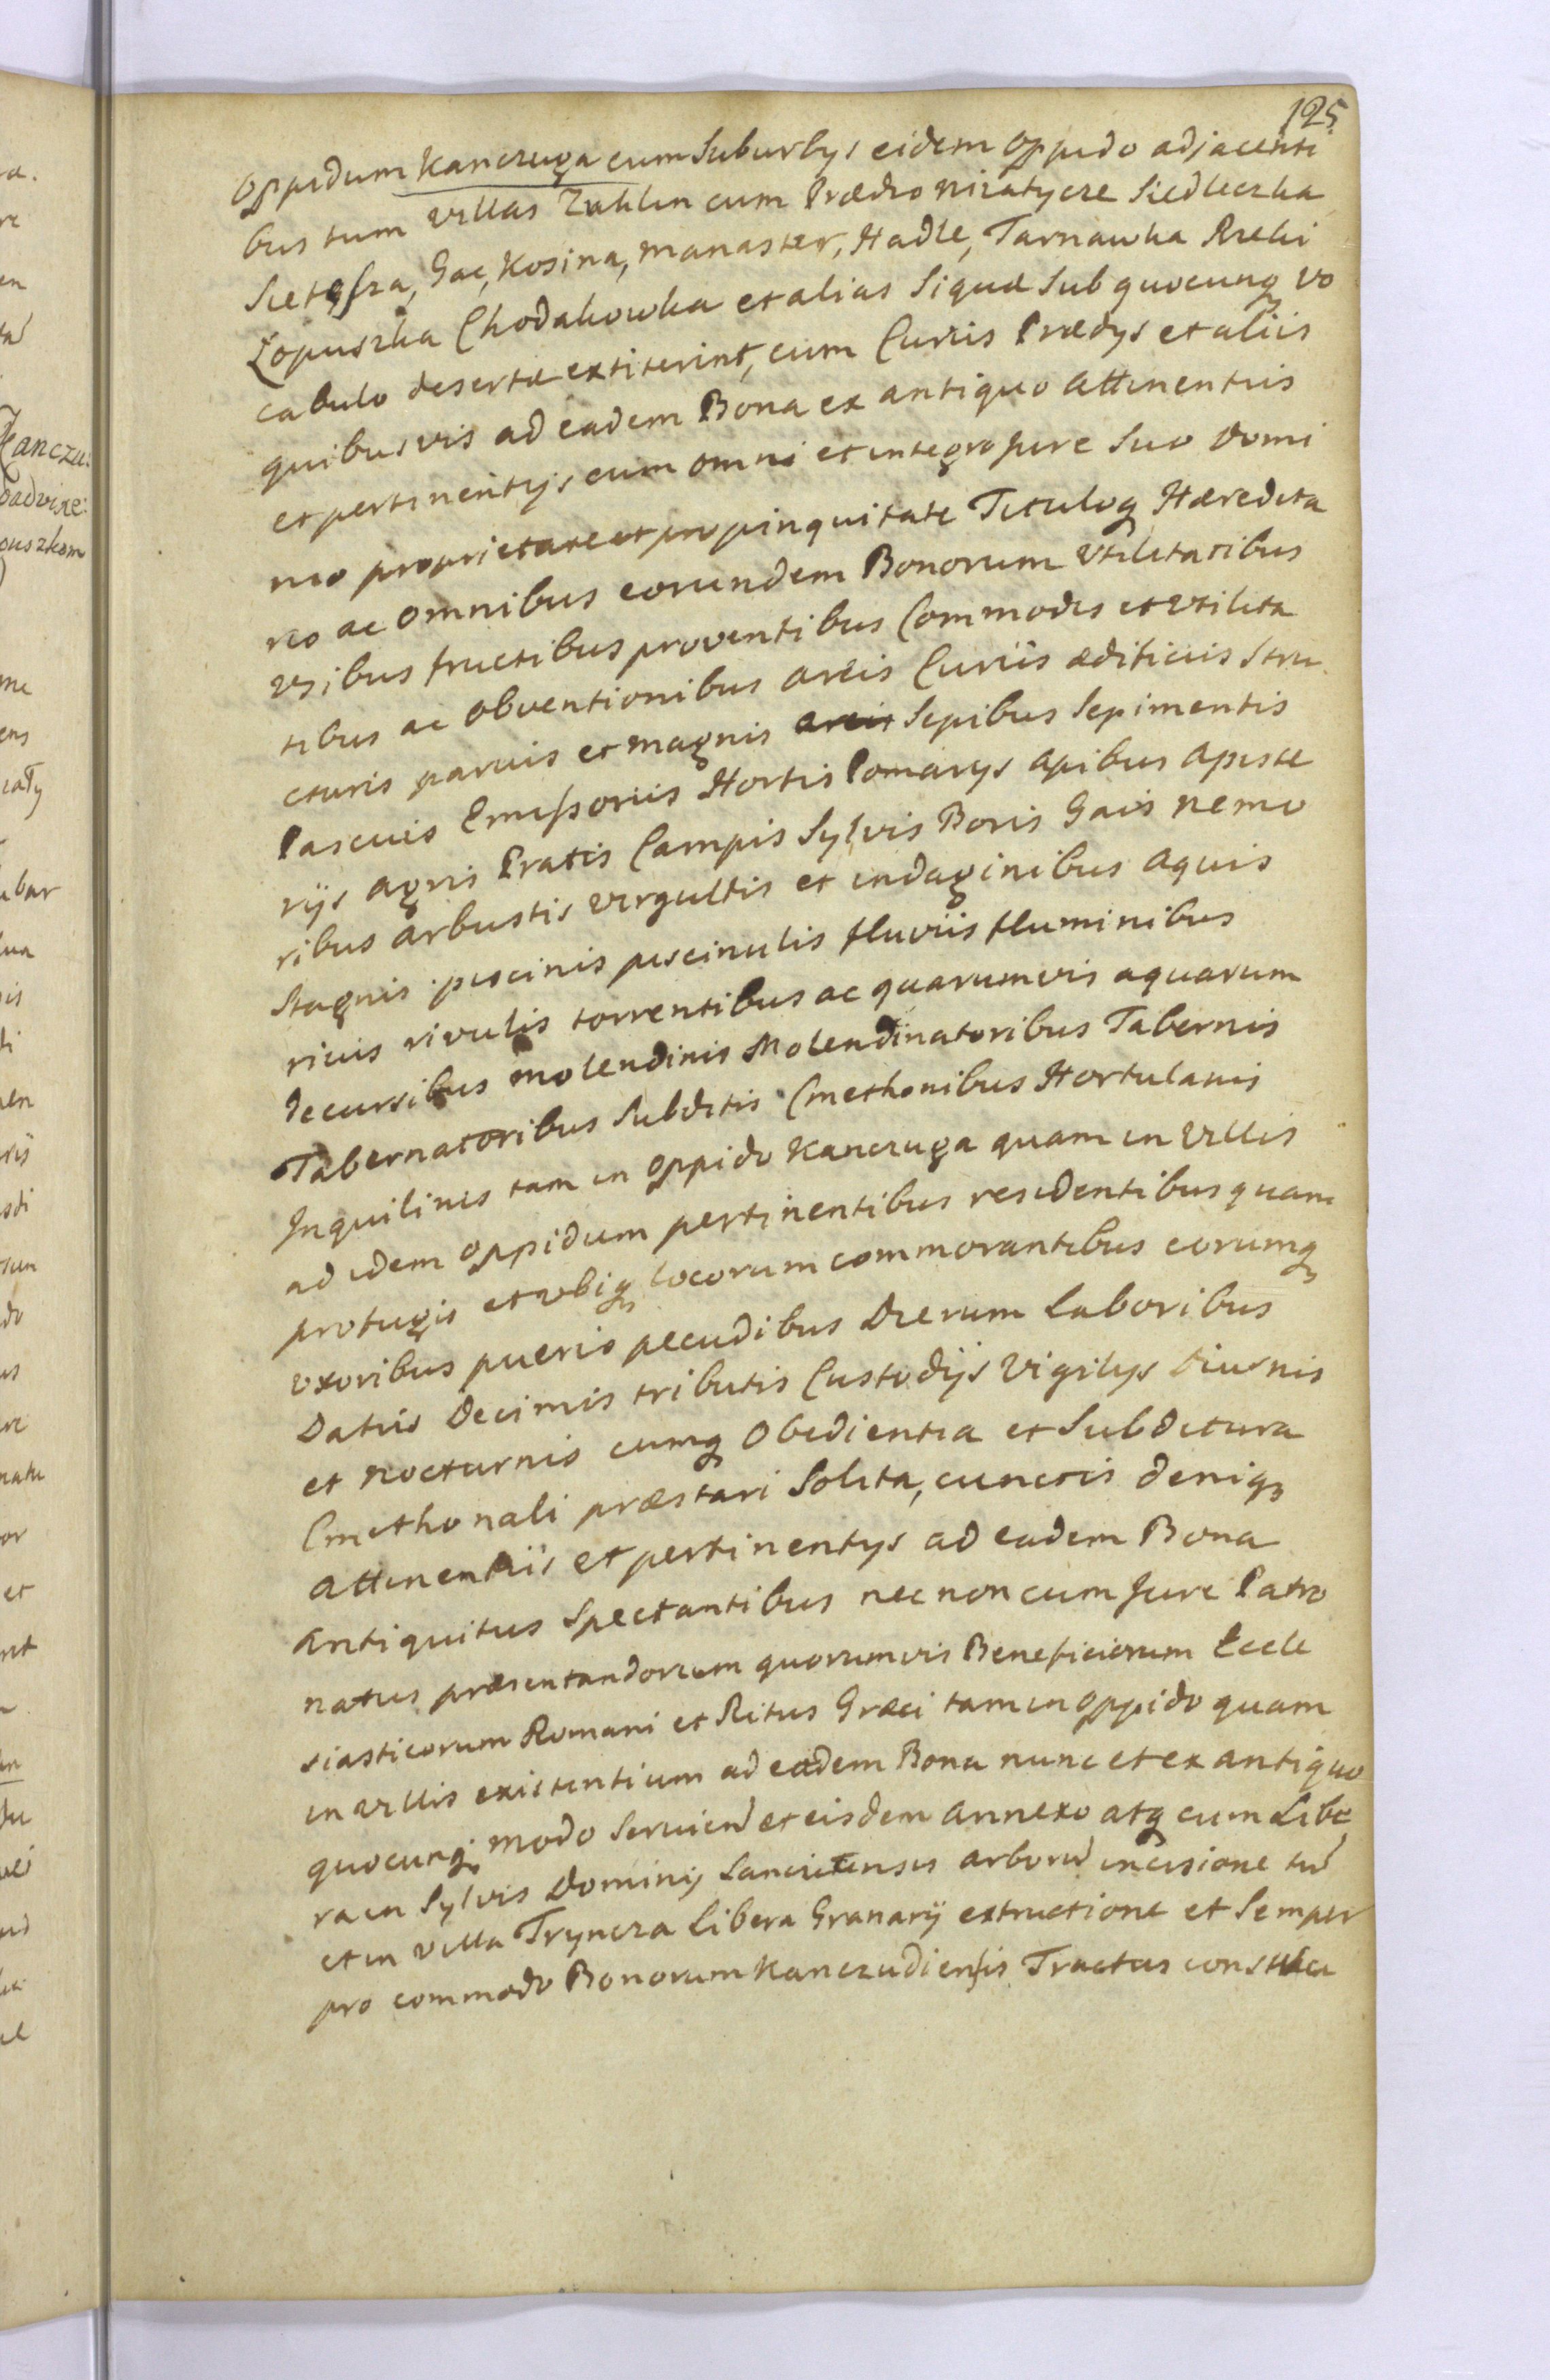 125
Oppidum Kanczuga cum Suburbijs eidem Oppido adjacenti
bus tum villas Zuklin cum Prædio Nizatycze Siedleczka
Sietesza, Gac, Kosina, Manaster, Hadle, Tarnawka Rzeki
Łopuszka Chodakowka et alias Siquæ Sub quocunq vo
cabulo desertæ extiterint, cum Curiis Prædijs et aliis
quibusvis ad eadem Bona ex antiquo Attinentiis
et pertinentijs cum omni et integro jure Suo Domi
nio proprietate et propinquitate Tituloq Hæredita
rio ac omnibus eorundem Bonorum Vtilitatibus
vsibus fructibus proventibus Commodis et vtilita
tibus ac obventionibus Areis Curiis ædificiis Stru
cturis parvis et magnis Sepibus Sepimentis
Pascuis Emissoriis Hortis Pomarijs Apibus Apiste
rijs Agris Pratis Campis Sylvis Boris Gais Nemo
ribus Arbustis virgultis et indaginibus Aquis
Stagnis piscinis piscinulis fluviis fluminibus
rivis rivulis torrentibus ac quarumvis aquarum
decursibus molendinis Molendinatoribus Tabernis
Tabernatoribus Subditis Cmethonibus Hortulanis
Inquilinis tam in Oppido Kanczuga quam in Villis
ad idem Oppidum pertinentibus residentibus quam
profugis et vbiq locorum commorantibus eorumq
vxoribus pueris pecudibus Dierum Laboribus
Datiis Decimis tributis Custodijs Vigilijs Diurnis
et Nocturnis cumq Obedientia et Subditura
Cmethonali præstari Solita, cunctis deniq
Attinentiis et pertinentijs ad eadem Bona
Antiquitus Spectantibus nec non cum Jure Patro
natus præsentandorum quorumvis Beneficiorum Eccle
siasticorum Romani et Ritus Græci tam in Oppido quam
in Villis existentium ad eadem Bona nunc et ex antiquo
quocunq modo Serviend et eisdem Annexo atq cum Libe
ra in Sylvis Dominij Lancitensis Arborũ incisione tũ
et in Villa Tryncza Libera Granarij extructione et Semper
pro commodo Bonorum Kanczudiensis Tractus